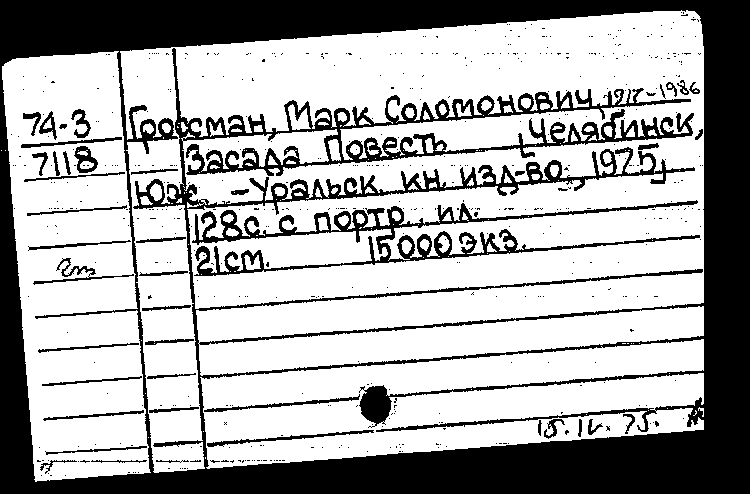 74-3 Гроссман, Марк Соломонович, 1917-1986
7118 Засада Повесть [Челябинск,
Юж.-Уральск. кн. изд-во, 1975]
128с. с портр., ил.
21см. 15000 экз.
15.IV.75.